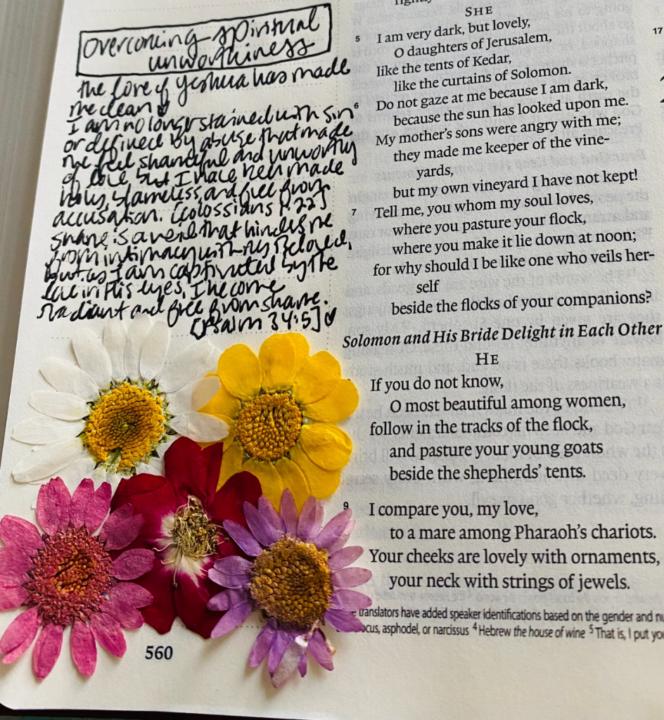 overcoming spiritual
unworthiness
the love of Yeshua has made
me clean
I am no longer stained with sin
or defined by abuse that made
me feel shameful and unworthy
of love but I have been made
holy, blameless, and free from
accusation. [Colossians 1:22]
shame is a veil that hinders me
from intimacy with my Beloved,
but as I am captivated by the
love in His eyes, I become
radiant and free from shame.
[Psalm 34:5]
560
SHE
5 I am very dark, but lovely,
O daughters of Jerusalem,
like the tents of Kedar,
like the curtains of Solomon.
6 Do not gaze at me because I am dark,
because the sun has looked upon me.
My mother's sons were angry with me;
they made me keeper of the vine-
yards,
but my own vineyard I have not kept!
7 Tell me, you whom my soul loves,
where you pasture your flock,
where you make it lie down at noon;
for why should I be like one who veils her-
self
beside the flocks of your companions?
Solomon and His Bride Delight in Each Other
HE
If you do not know,
O most beautiful among women,
follow in the tracks of the flock,
and pasture your young goats
beside the shepherds' tents.
9 I compare you, my love,
to a mare among Pharaoh's chariots.
Your cheeks are lovely with ornaments,
your neck with strings of jewels.
translators have added speaker identifications based on the gender and
asphodel, or narcissus 4 Hebrew the house of wine 5 That is, I put
17